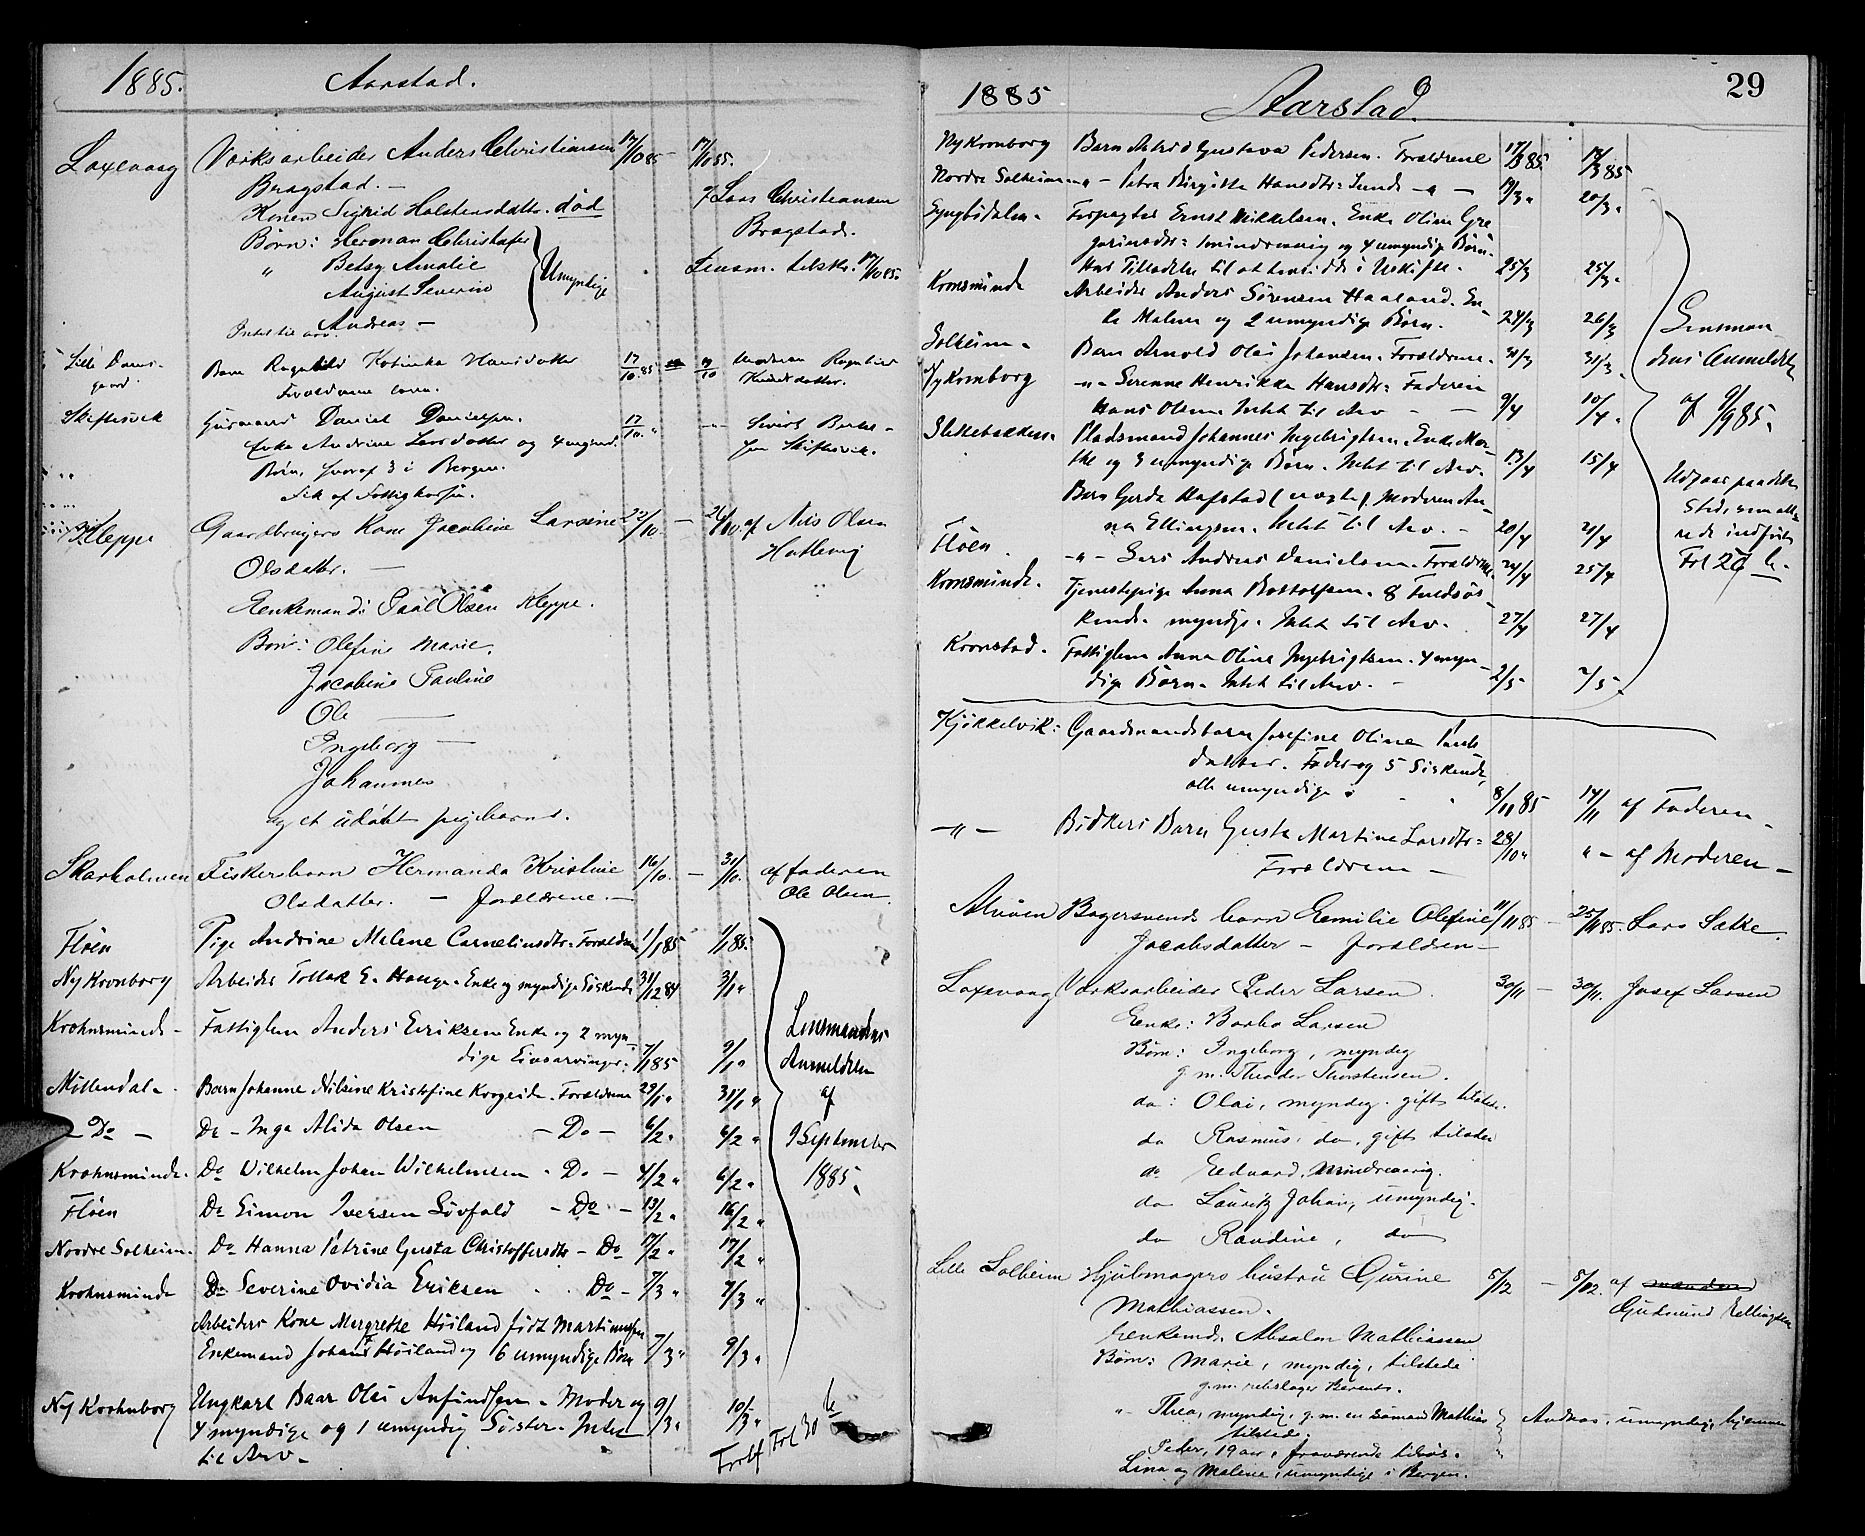 1885. Aarstad.
Laxevaag Værksarbeider Anders Christiansen 17/10 85 — 17/10 85.
Bragstad. —
af Lars Christiansen
Konen Sigrid Holstensdatter. död
Bragstad.
Børn: Herman Christofer
" Betsy Amalie
August Severin
Umyndige
Lensm. tilskr. 17/10 85.
Andreas —
Intet til arv.
Lille Dams-
gaard
Barn Ragnhild Katinka Hansdatter 17/10 85 17/10
Forældrene leve.
Moderen Ragnhild
Skiftesvik Huusmand Daniel Danielsen. 17/10 "
Enke Andrine Larsdatter og 4 mynd.
Børn, hvoraf 3 i Bergen.
Sivert
Skiftesvik.
Fik af Fattigkassen.
Kleppe Gaardbrugers Kone Jacobine Larsine 22/10. — 26/10. af Nils Olsen
Olsdatter. —
Enkemand: Paul Olsen Kleppe.
Børn: Olefine Marie.
Jacobine Pauline
Ole —
Ingeborg —
Johannes
og et udøbt pigebarn.
Skarholmen Fiskers barn Hermanda Kristine 16/10. — 31/10. af faderen
Olsdatter. — forældrene. — Ole Olsen.
Fløen Pige Andrine Malene Corneliusdtr: Forældrene 1/1 85 1/1 85.
Ny Kronborg Arbeider Tollak E. Hauge. Enke og myndige Søskende 31/12 84 3/1 "
Krohnsminde — Fattiglem Anders Eriksen Enke og 2 myn-
dige Livsarvinger: 7/1 85 9/1 "
Lensmandens
Anmeldelse
af
9 September
1885.
Møllendal — Barn Johanne Nilsine Kristofine Forældrene 29/1 " 31/1 "
— Do — Do — Inga Alida Olsen — Do — 6/2 " 6/2 "
Krohnsminde. Do Wilhelm Johan Wilhelmsen - Do — 4/2 " 6/2 "
Fløen Do Simon Iversen Løvfald — Do — 13/2 " 16/2 "
Nordre Solheim. Do Hanna Petrine Gusta Christoffersdtr — Do 17/2 " 17/2 "
Krohnsminde Do Severine Ovidia Eriksen - - Do — 7/3 " 7/3 "
Arbeiders Kone Margrethe Høiland født Martinussen
Enkemand Johan Høiland og 6 umyndige Børn 7/3 " 9/3 "
Ny Krohnborg Ungkarl Baar Olai Anfindsen - Moder og 9/3 " 10/3 "
4 myndige og 1 umyndig Søster. Intet
til Arv —
Fol 30
1885 Aarstad. 29
Ny Kronborg Barn Astrid Gustava Pedersen. Forældrene 17/3 85 18/3 85
Nordre Solheim — " — Petra Birgitte Hansdtr: Sunde — " — 19/3 " 20/3 "
Forpagter Ernst Mikkelsen. Enke Oline Gre
goriusdtr: 1 mindreaarig og 4 umyndige Børn.
Har Tilladelse til at hensidde i Uskifte. 25/3 25/3 "
Kronsminde Arbeider Anders Sørensen Haaland. En-
ke Malene og 2 umyndige Børn. 24/3 26/3
Solheim — Barn Arnold Olai Johansen. Forældrene. 31/3 31/3 "
Ny Kronborg — " — Serenne Henrikke Hansdtr: Faderen
Hans Olsen. Intet til Arv — — 9/4 10/4 "
Slettebakken. Pladsmand Johannes Ingebrigtsen. Enke Mar-
the og 3 umyndige Børn. Intet til Arv. 13/4 15/4
Barn Gerda Hafstad (uægte). Moderen An-
na Ellingsen. Intet til Arv. — 20/4 21/4
Fløen — " — Lars Andreas Danielsen. Forældrene. 24/4 25/4
Kronsminde. Tjenestepige Anna Bottolfsen. 8 Fuldsøs-
kende myndige. Intet til Arv. 27/4 27/4
Kronstad. Fattiglem Anna Oline Ingebrigtsen. 4 myn-
dige Børn. Intet til Arv. — 2/5 2/5
Lensman-
dens Anmeldelse
af 9/9 85.
Udgaar paa dette
Sted, som alle-
rede indført
Fol 27
Kjøkkelvik: Gaardmandsbarn Josefine Oline
datter. Fader og 5 Søskende,
alle umyndige 8/11 85 14/11 af Faderen —
— " — Bødkers Barn Gusta Martine Larsdtr: 28/10 " " — af Moderen —
Forældrene —
Alvøen Bagersvends barn Emilie Olefine 11/11 85 — 25/11 85. Lars Sætre.
Jacobsdatter — forældren —
Laxevaag Værksarbeider Peder Larsen. 30/11 — 30/11. Josef Larsen
Enke: Barbo Larsen
Børn: Ingeborg, myndig
g. m. Theodor Thorstensen.
do: Olai, myndig. gift, tilstede.
do Rasmus, do, gift tilstede
do Edvard, mindreaarig.
do Lauritz Johan, umyndig.
do Randine, do
Lille Solheim Hjulmagers hustru Gurine 5/12 — 8/12. af manden
Mathiassen. Gudmund Ellingsen
Enkemd. Absalon Mathiassen
Børn: Marie, myndig, tilstede
g. m. rebslager Berents.
" Thea, myndig, g. m. en sømand Mathias
tilstede.
Andreas, umyndig, hjemme
Peder, 19 aar, fraværende tilsøs.
Lina og Malene, umyndige i Bergen.